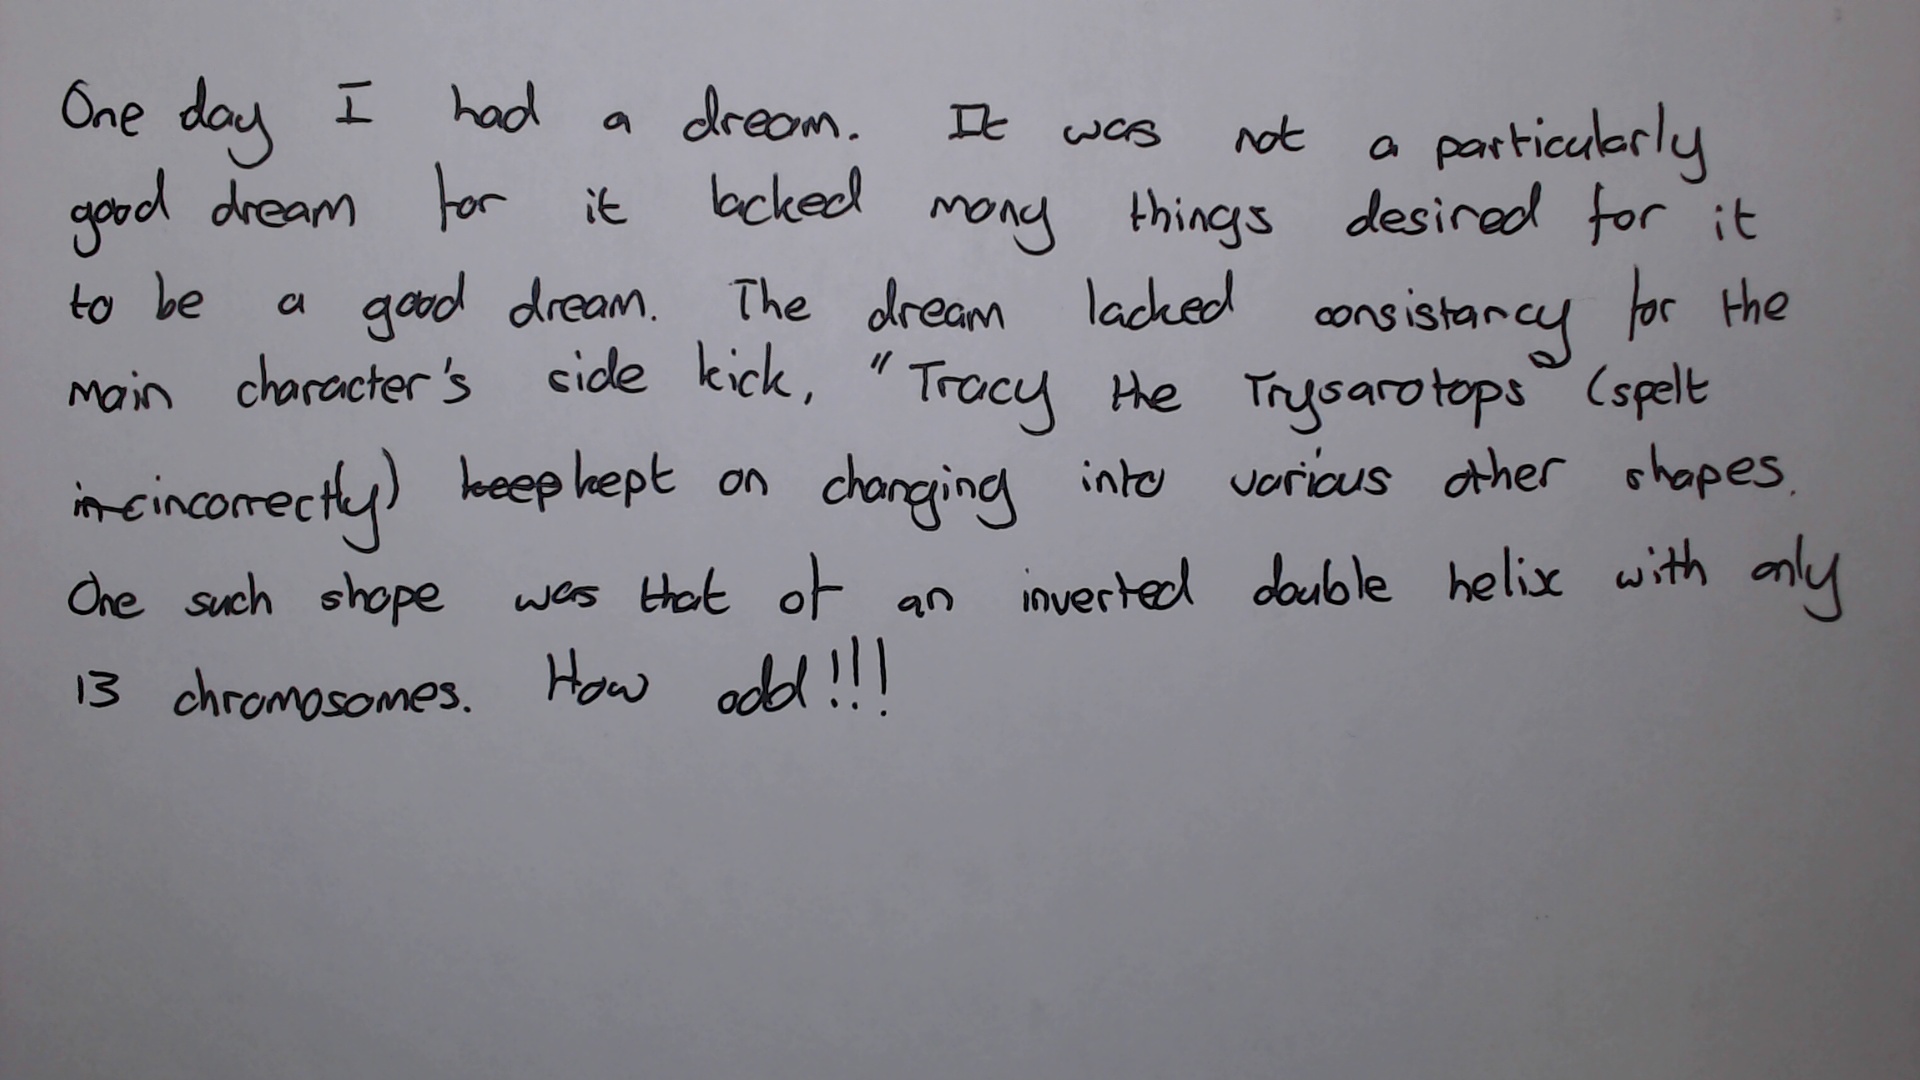 One day I had a dream. It was not a particularly
good dream for it lacked many things desired for it
to be a good dream. The dream lacked consistancy for the
main character's side kick, "Tracy the Trysarotops" (spelt
inc incorrectly) keep kept on changing into various other shapes.
One such shape was that of an inverted double helix with only
13 chromosomes. How odd!!!